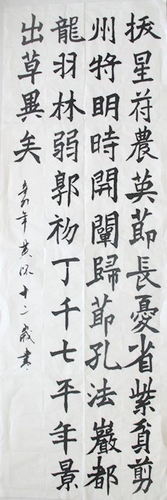 拔星荷農英節長憂省紫貧剪
州將明時開闡歸節孔法巖都
龍羽林弱郭初丁千七平年景
出草異矣
辛卯年
十二歲書